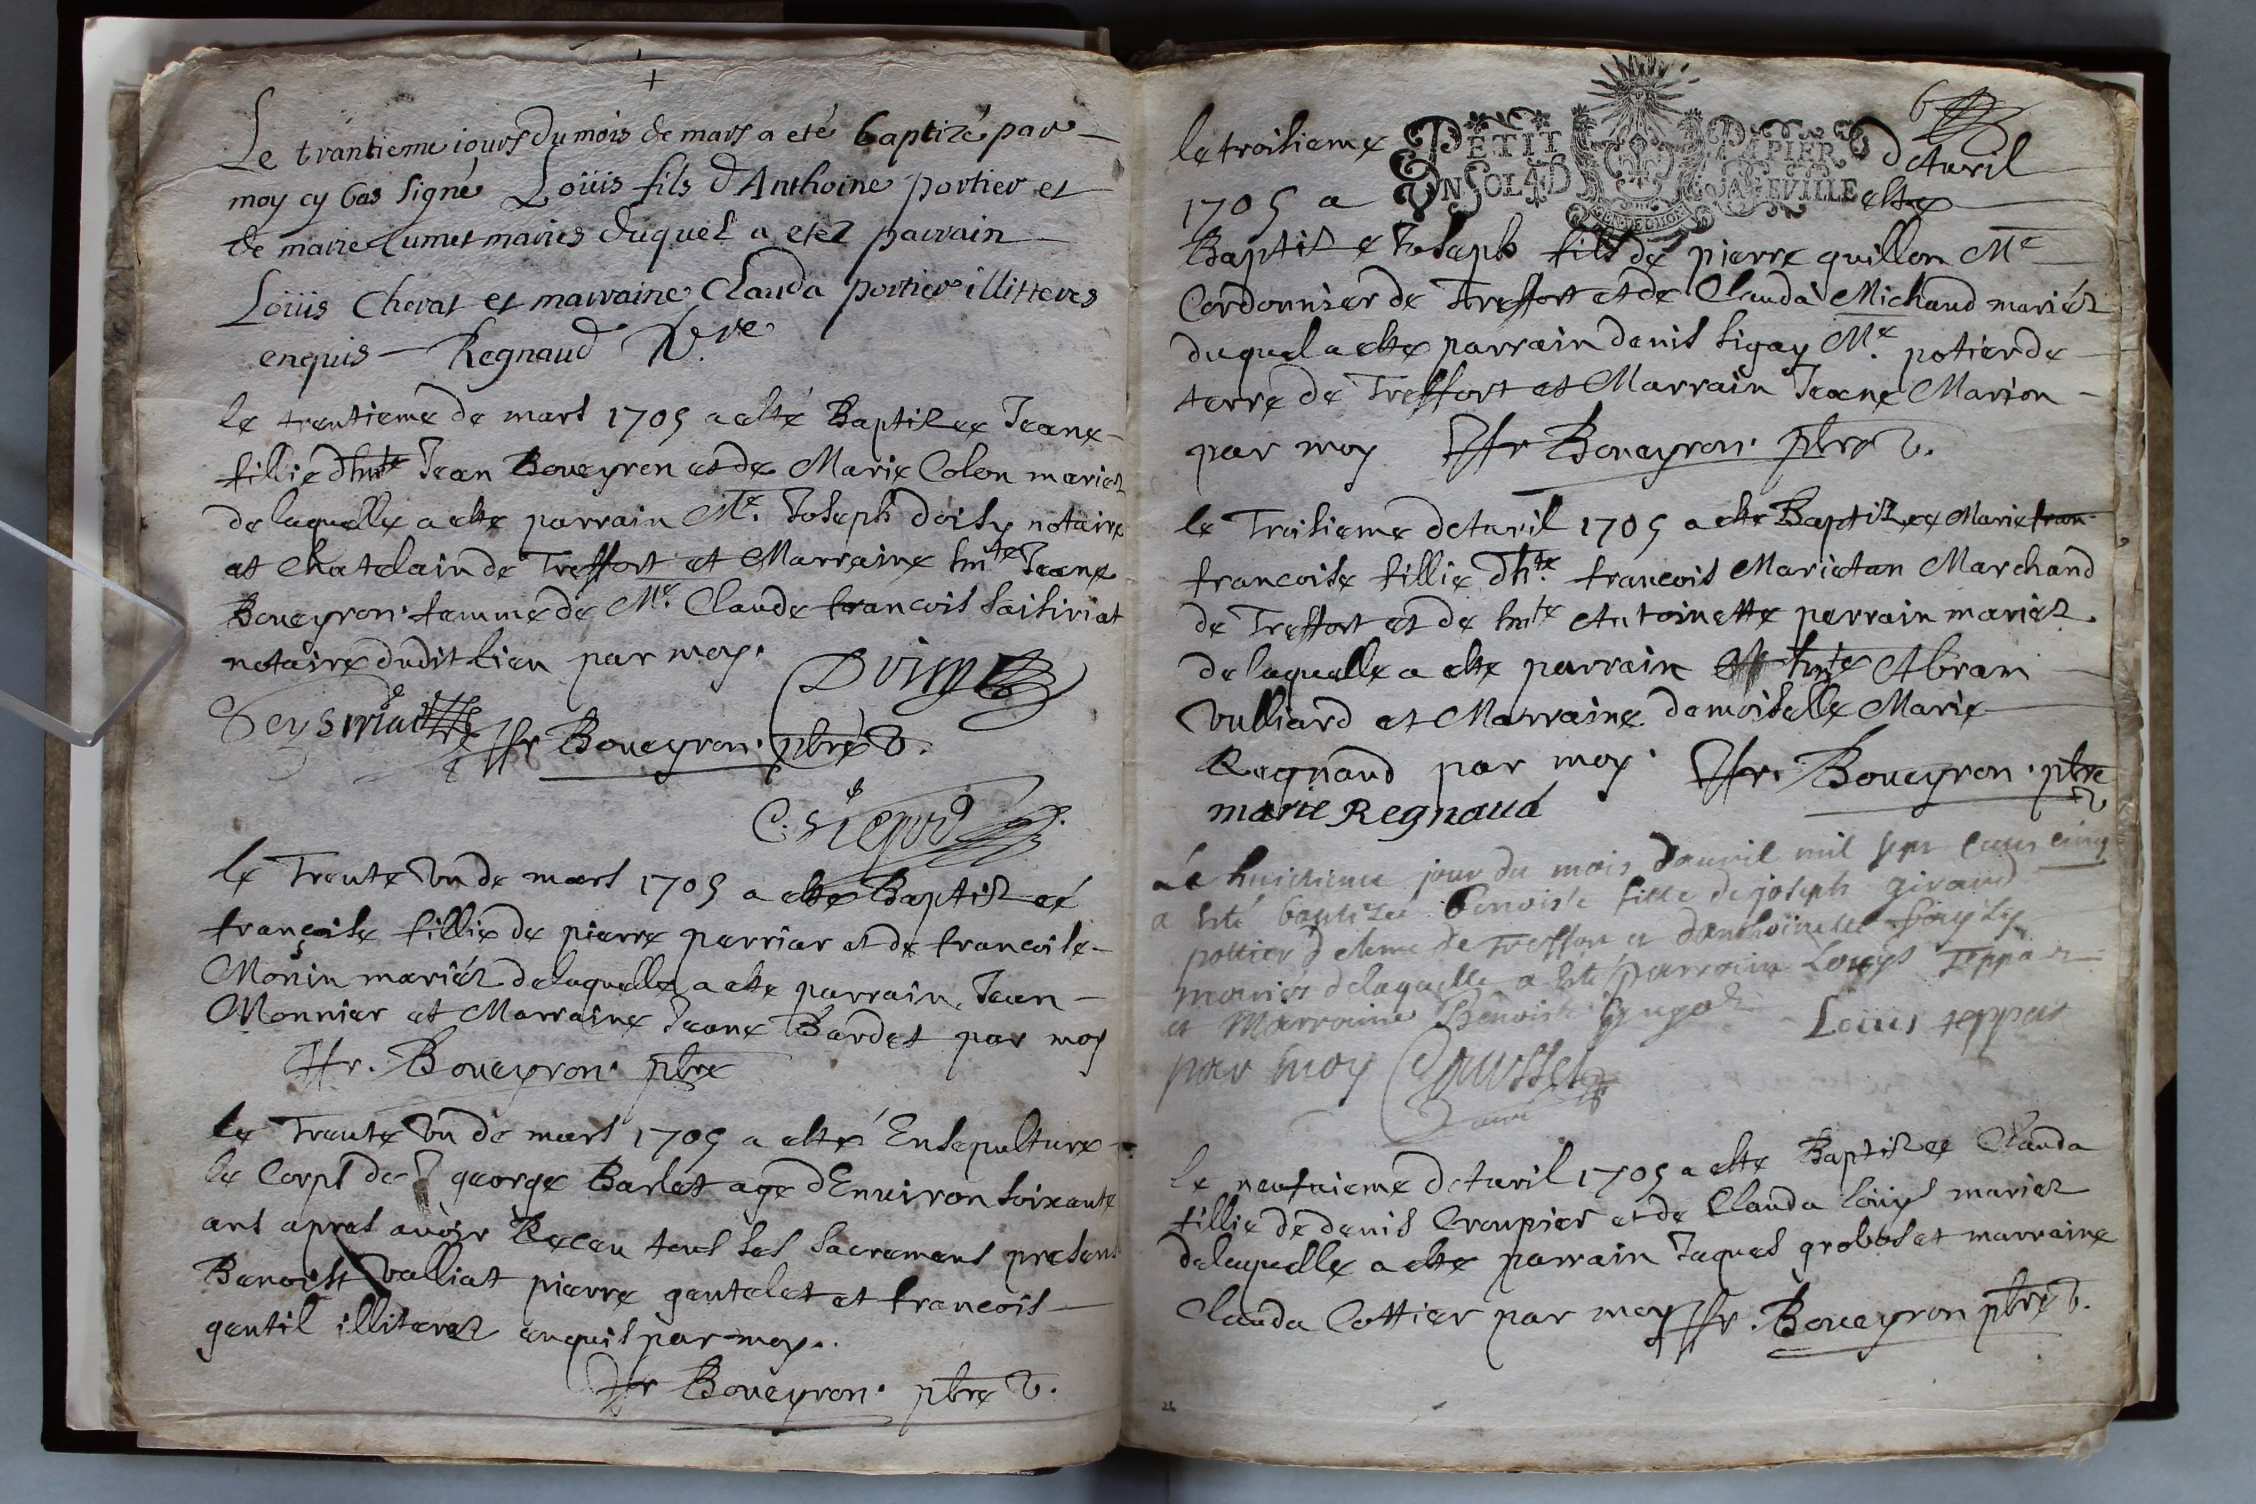 Le trantieme iours du mois de mars a eté baptizé par
moy cy bas signé Loüis fils d'Anthoine portier et
de marie Cumet mariés duquel a etez parrain
Loüis Cherat et marraine Clauda portier illitteres
enquis Regnaud
le trentieme de mars 1705 a esté Baptizee Jeane
fillie dhnte Jean Boueyron et de Marie Colon mariez
de laquelle a este parrain Me. Joseph doisy notaire
et Chatelain de Treffort et Marraine hnte Jeane
Boueyron femme de Me. Claude francois Saisiriat
notaire dudit lieu par moy.
Seysiriat
Boueyron. pbre v.
le Trente vn de mars 1705 a este Baptizeé
françoise fillie de pierre perriar et de francoise
Monin mariéz de laquelle a este parrain Jean
Monnier et Marraine Jeane Bardet par moy
Boueyron. pbre
le Trente vn de mars 1705 a esté Ensepulture
le Corps de george Barlet agé dEnuiron soixante
ans apres auoir Receu tous ses sacremens presens
Benoist valliat pierre gentelet et francois
gentil illiterez enquis par moy.
Boueyron. pbre v.
6
le troisieme PETIT PAPIER dAuril
1705 a UN SOL 4 D LA FEVILLE este
GEN DE DIJON
Baptize Joseph fils de pierre guillon Me
Cordonnier de Treffort et de Clauda Michaud mariéz
duquel a este parrain denis sigay Me. potier de
terre de Treffort et Marrain Jeane Marion
par moy Boueyron. pbre v.
le Troisieme dAuril 1705 a este Baptizee Marie fran
francoise fillie dhte. francois Marietan Marchand
de Treffort et de hnte Antoinette perrain mariez.
de laquelle a este parrain hnte Abran
vulliard et Marraine demoiselle Marie
Regnaud par moy. Boueyron. pbre
v
marie Regnaud
Le huitieme jour du mois dauril mil sept cens cinq
a esté baptizée benoiste fille de joseph giraud
pottier de terre de Treffort et danthoinette
mariés de laquelle a esté parrain Louys Teppaz
et Marraine Benoiste
Loüis teppat
par moy
curé
le neufuieme dAuril 1705 a este Baptizee Clauda
fillie de denis Croupier et de Clauda loüys mariez
de laquelle a este parrain Jaques grobos et marraine
Clauda Cottier par moy Boueyron pbre v.